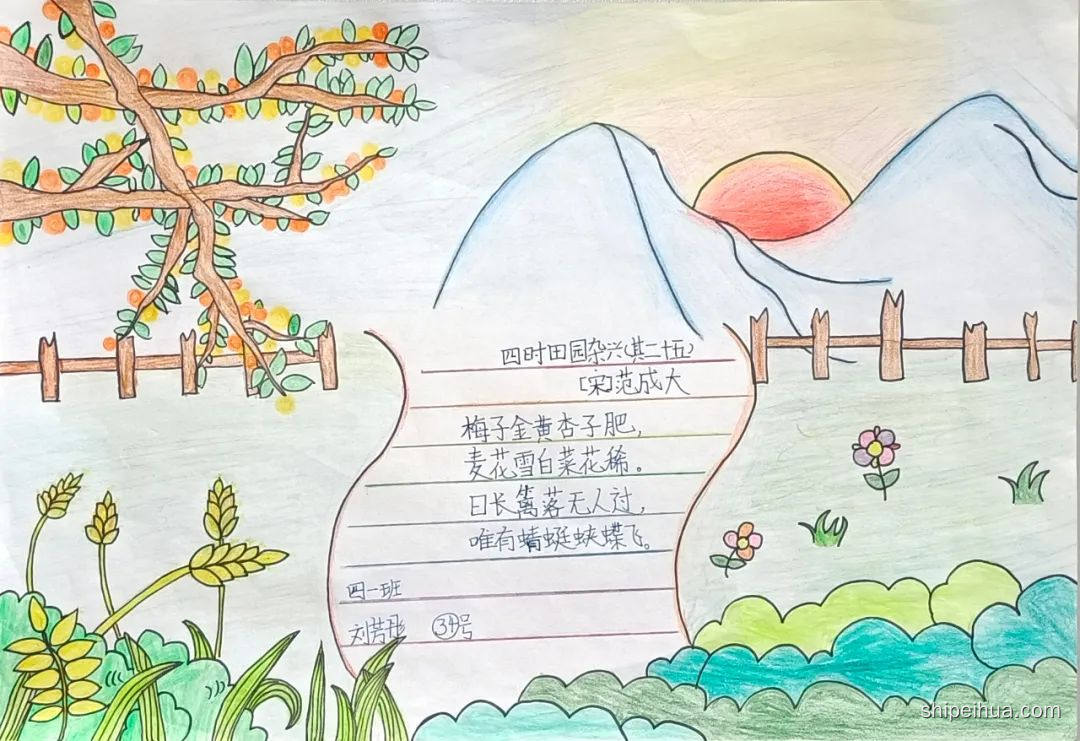 四时田园杂兴(其二十五)
[宋]范成大
梅子金黄杏子肥，
麦花雪白菜花稀。
日长篱落无人过，
唯有蜻蜓蛱蝶飞。
四一班
刘芳彤 34号
shipeihua.com